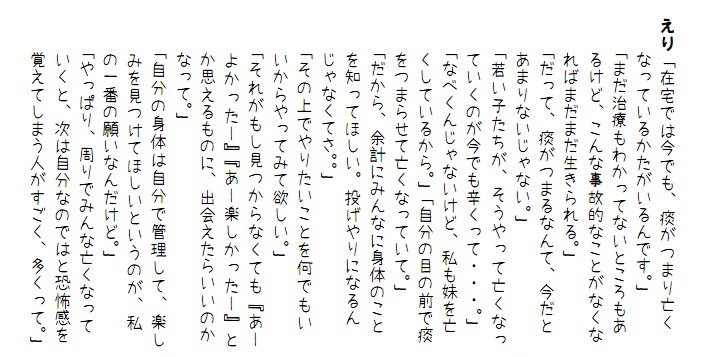 えり「在宅では今でも、痰がつまり亡く
なっているかたがいるんです。」
「まだ治療もわかってないところもあ
るけど、こんな事故的なことがなくな
ればまだまだ生きられる。」
「だって、痰がつまるなんて、今だと
あまりないじゃない。」
「若い子たちが、そうやって亡くなっ
ていくのが今でも辛くって・・・。」
「なべくんじゃないけど、私も妹を亡
くしているから。」「自分の目の前で痰
をつまらせて亡くなっていて。」
「だから、余計にみんなに身体のこと
を知ってほしい。投げやりになるん
じゃなくてさ。。」
「その上でやりたいことを何でもい
いからやってみて欲しい。」
「それがもし見つからなくても『あー
よかったー』『あー楽しかったー』と
か思えるものに、出会えたらいいのか
なって。」
「自分の身体は自分で管理して、楽し
みを見つけてほしいというのが、私
の一番の願いなんだけど。」
「やっぱり、周りでみんな亡くなって
いくと、次は自分なのではと恐怖感を
覚えてしまう人がすごく、多くって。」